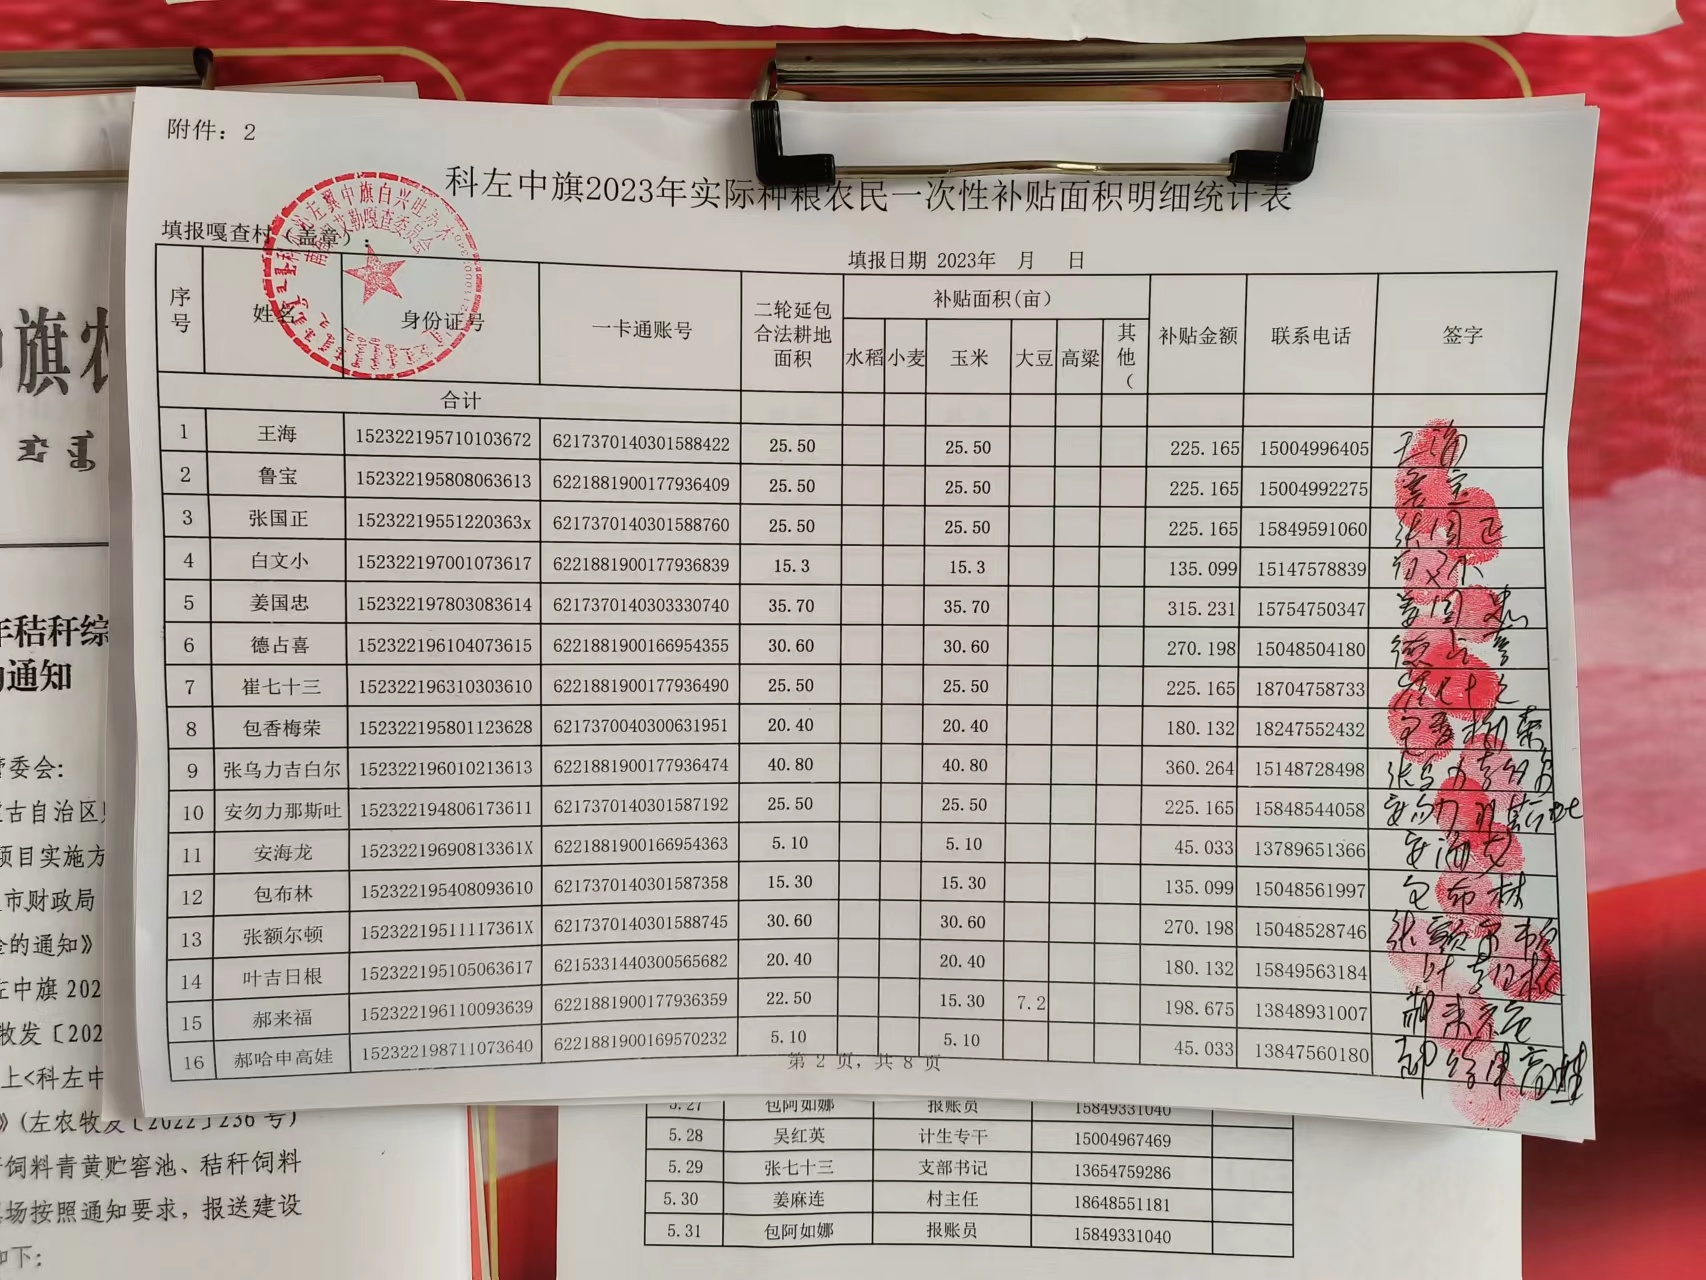 附件：2
科左中旗2023年实际种粮农民一次性补贴面积明细统计表
填报嘎查村（盖章）：
填报日期 2023年 月 日
序号 姓名 身份证号 一卡通账号 二轮延包合法耕地面积 补贴面积(亩) 补贴金额 联系电话 签字
水稻 小麦 玉米 大豆 高粱 其他（
合计
1 王海 152322195710103672 6217370140301588422 25.50 25.50 225.165 15004996405 王海
2 鲁宝 152322195808063613 6221881900177936409 25.50 25.50 225.165 15004992275 鲁宝
3 张国正 15232219551220363x 6217370140301588760 25.50 25.50 225.165 15849591060 张国正
4 白文小 152322197001073617 6221881900177936839 15.3 15.3 135.099 15147578839
5 姜国忠 152322197803083614 6217370140303330740 35.70 35.70 315.231 15754750347 姜国忠
6 德占喜 152322196104073615 6221881900166954355 30.60 30.60 270.198 15048504180 德占喜
7 崔七十三 152322196310303610 6221881900177936490 25.50 25.50 225.165 18704758733 崔七十三
8 包香梅荣 152322195801123628 6217370040300631951 20.40 20.40 180.132 18247552432 包香梅荣
9 张乌力吉白尔 152322196010213613 6221881900177936474 40.80 40.80 360.264 15148728498
10 安勿力那斯吐 152322194806173611 6217370140301587192 25.50 25.50 225.165 15848544058
11 安海龙 15232219690813361X 6221881900166954363 5.10 5.10 45.033 13789651366 安海龙
12 包布林 152322195408093610 6217370140301587358 15.30 15.30 135.099 15048561997 包布林
13 张额尔顿 15232219511117361X 6217370140301588745 30.60 30.60 270.198 15048528746 张额尔顿
14 叶吉日根 152322195105063617 6215331440300565682 20.40 20.40 180.132 15849563184 叶吉日根
15 郝来福 152322196110093639 6221881900177936359 22.50 15.30 7.2 198.675 13848931007 郝来福
16 郝哈申高娃 152322198711073640 6221881900169570232 5.10 5.10 45.033 13847560180 郝哈申高娃
第 2 页，共 8 页
5.27 包阿如娜 报账员 15849331040
5.28 吴红英 计生专干 15004967469
5.29 张七十三 支部书记 13654759286
5.30 姜麻连 村主任 18648551181
5.31 包阿如娜 报账员 15849331040
旗农
年秸秆综
通知
管委会:
古自治区
项目实施方
市财政局
金的通知》
左中旗 202
牧发〔202
上<科左中
》(左农牧发〔2022〕236 号)
饲料青黄贮窖池、秸秆饲料
场按照通知要求，报送建设
如下: